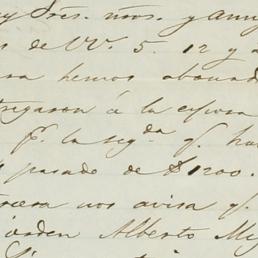 Sres. ntros. y am
s de VV. 5. 12 y 2
ra hemos abonad
tregaron á la esposa
pr. la segda. q. ha
pasado de $1200.
rcera nos avisa q.
orden Alberto My